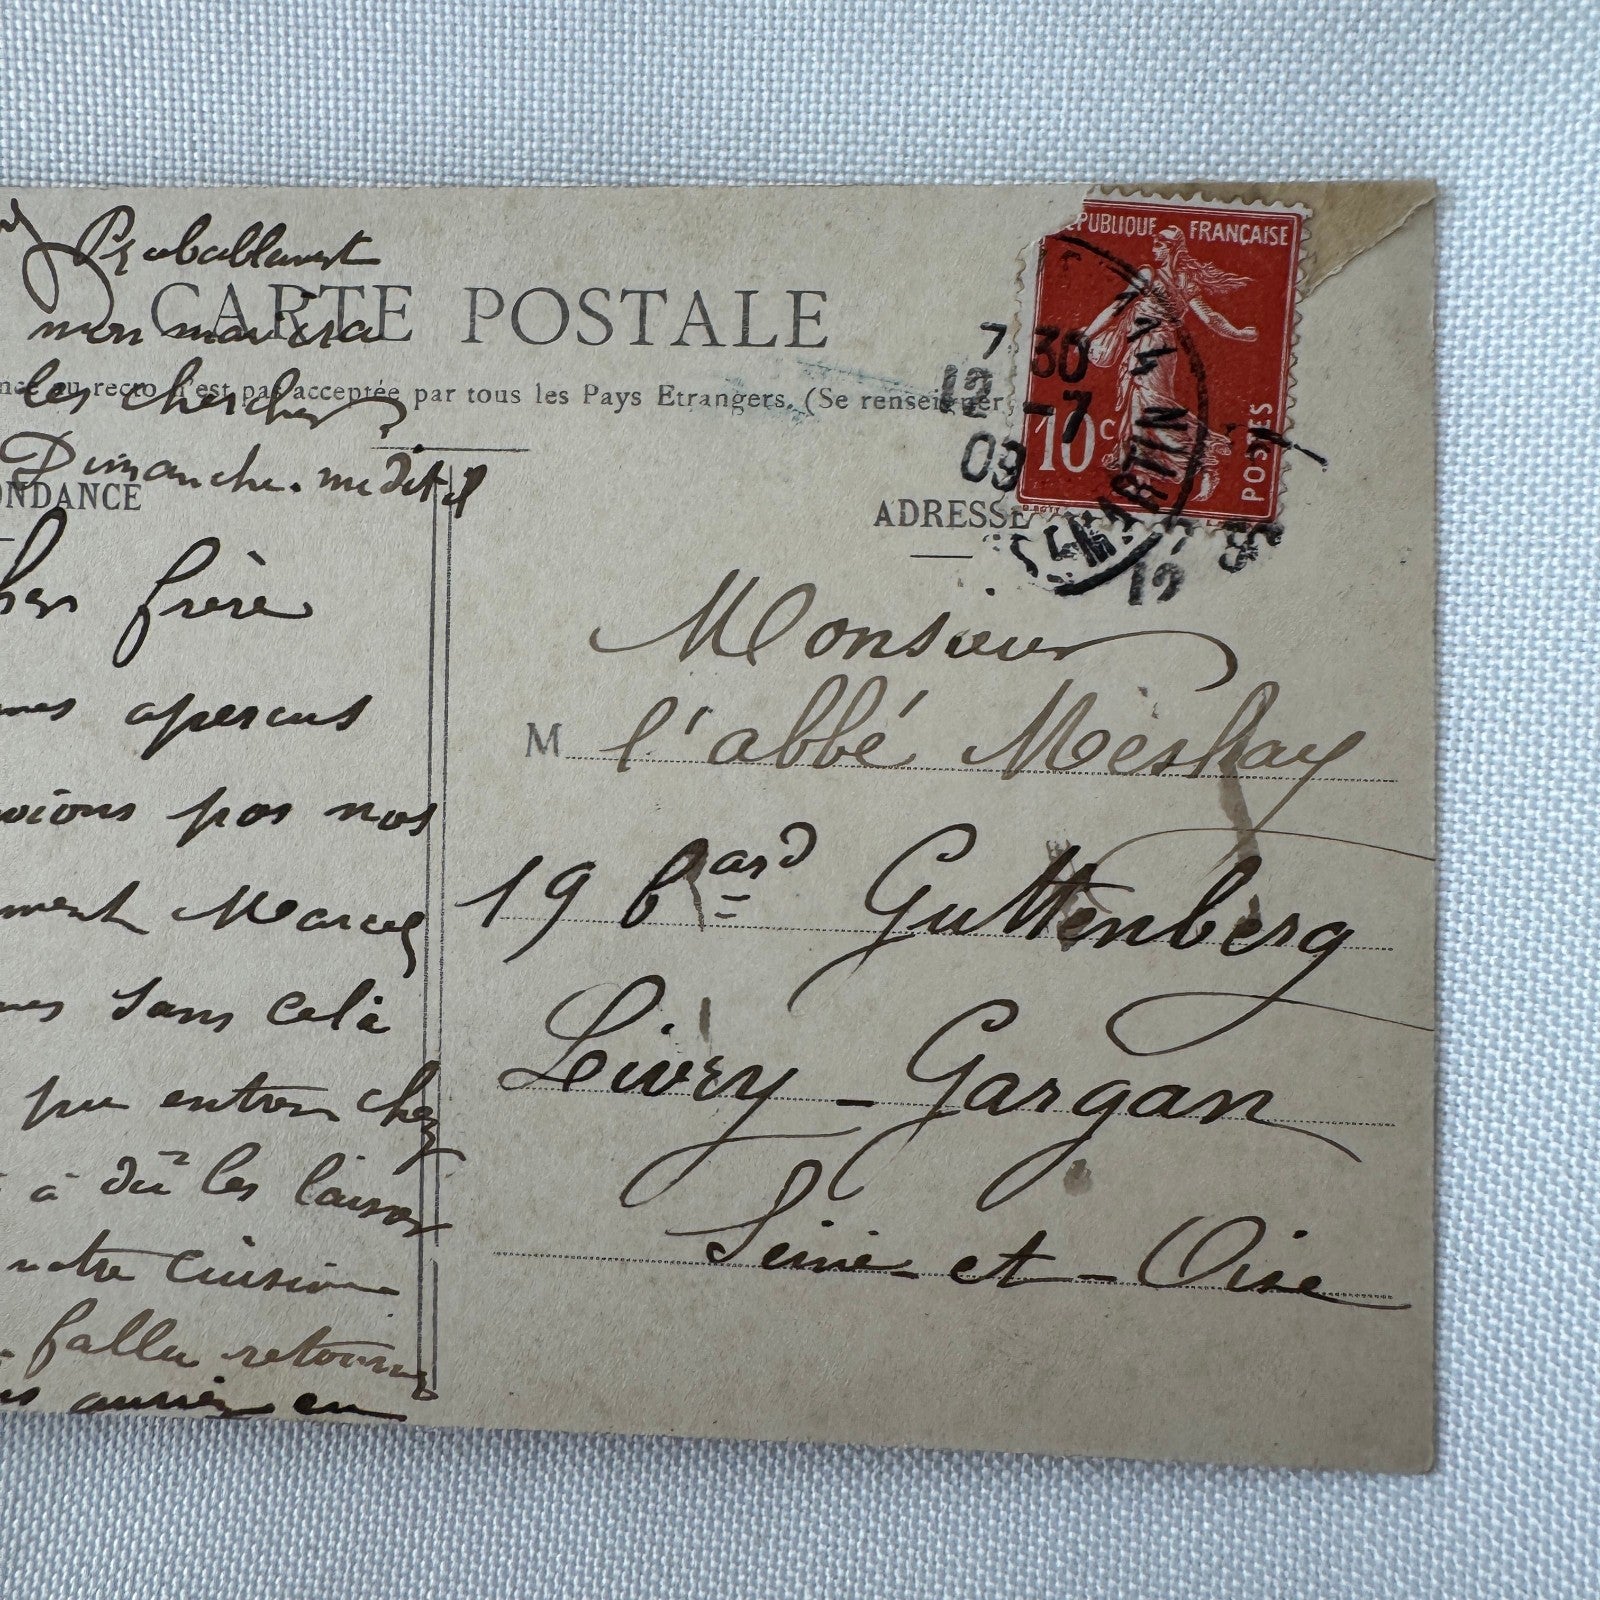 Probablement
CARTE POSTALE
mon mari ira
les chercher
au recto n'est pas acceptée par tous les Pays Etrangers. (Se renseigner
Dimanche. me dit il
ONDANCE
frère
aperçus
pas nos
Marcel
sans celà
pu entrer chez
à dû les laisser
notre cuisine
fallu retourner
en
RÉPUBLIQUE FRANÇAISE
10c
POSTES
7 30
12 -7
09
MARTIN
12
ADRESSE
Monsieur
M l'abbé Meshay
19 bard Guttenberg
Livry - Gargan
Seine-et-Oise